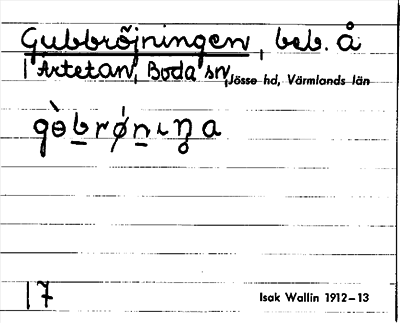 Gubbröjningen, beb. å
Årtetan, Boda sn, Jösse hd, Värmlands län
17
Isak Wallin 1912–13